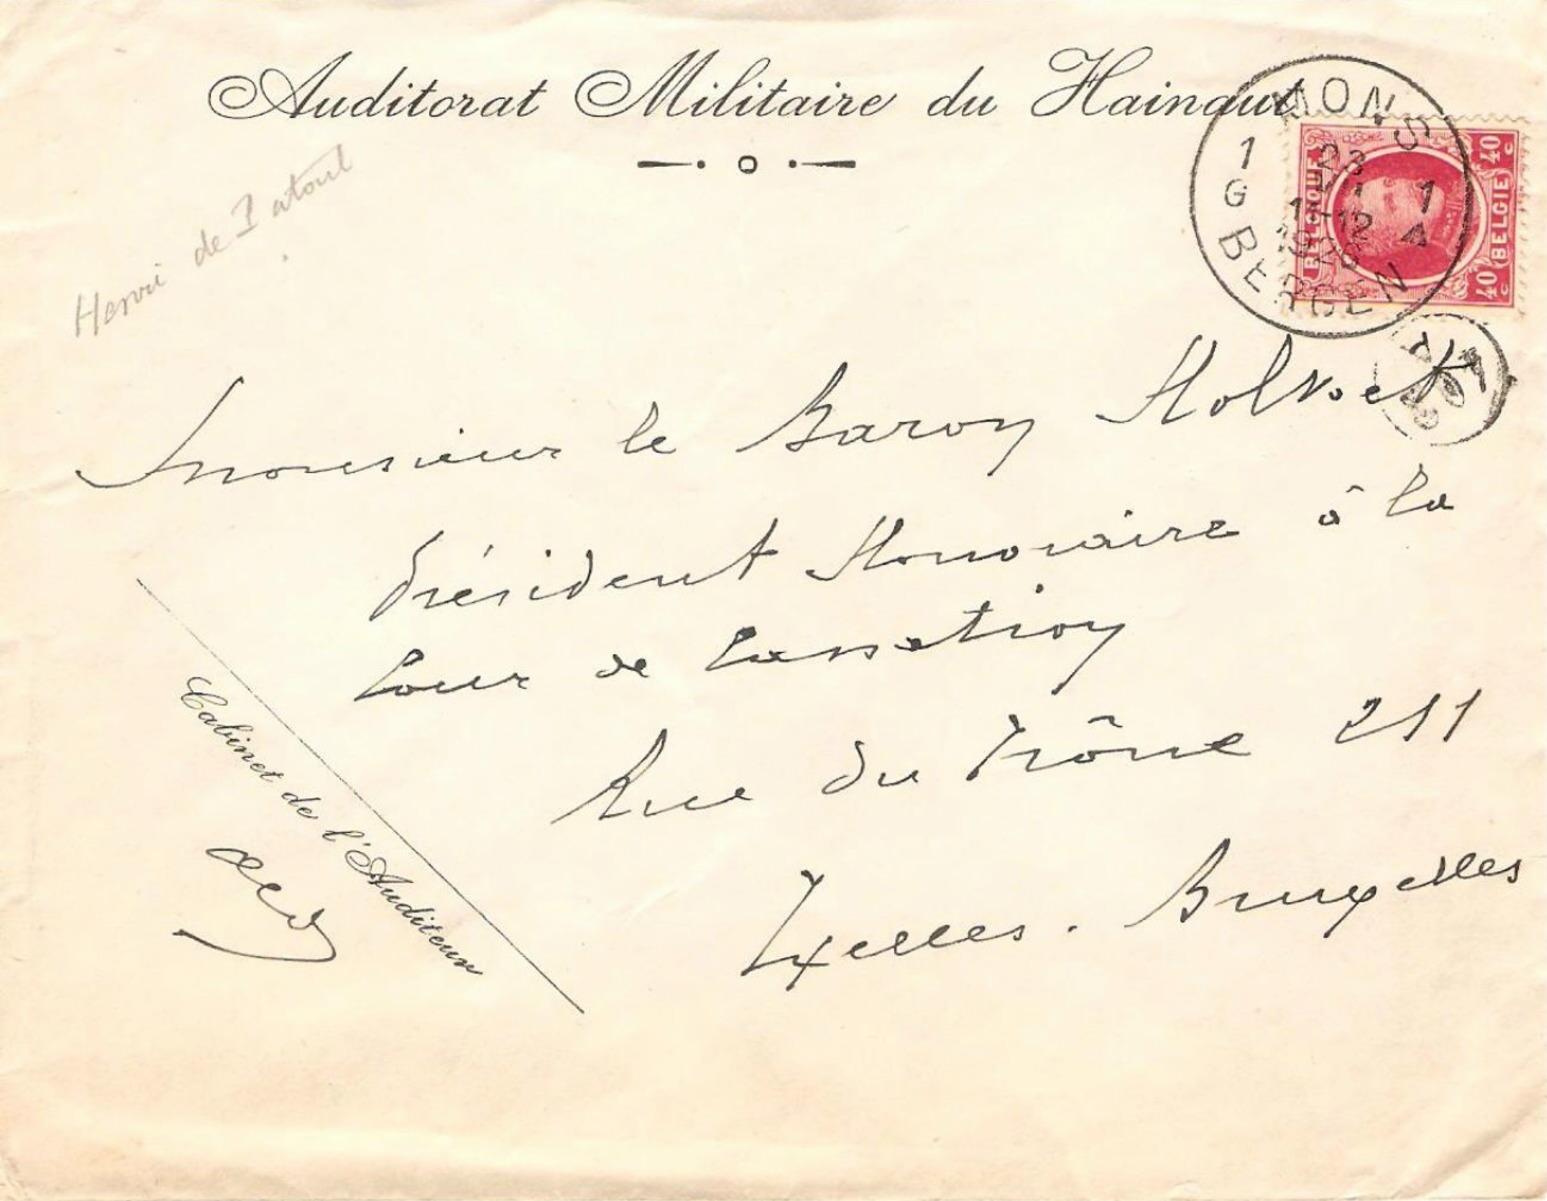 Auditorat Militaire du Hainaut
MONS
1 23 1
G 11-12 A
1926
BERGEN
BELGIQUE BELGIE
40 c 40 c
Henri de
Monsieur le Baron Holvoet
Président Honoraire à la
Cour de Cassation
Rue du Trône 211
Ixelles. Bruxelles
Cabinet de l'Auditeur